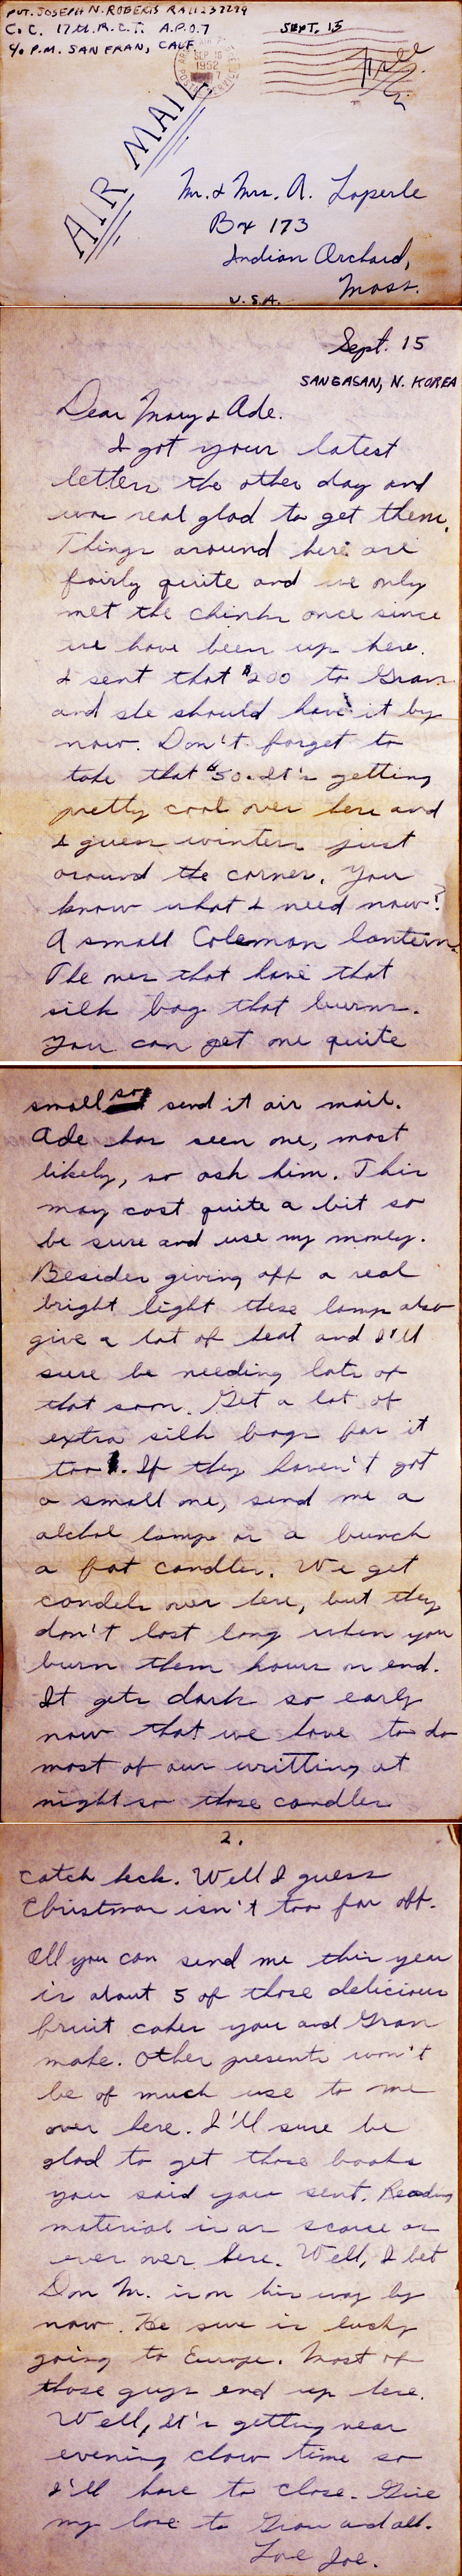 PVT. JOSEPH N. ROBERTS RA11237279
C. C. 17th. R.C.T. A.P.O. 7
c/o P.M. SAN FRAN, CALF.
SEPT. 15
SEP 16
1952
Free
AIR MAIL
Mr. & Mrs. A. Laperle
Box 173
Indian Orchard,
Mass.
U.S.A.
Sept. 15
SANGASAN, N. KOREA
Dear Mary & Ade.
I got your latest
letters the other day and
was real glad to get them.
Things around here are
fairly quite and we only
met the chinks once since
we have been up here.
I sent that $200 to Gram
and she should have it by
now. Don't forget to
take that $50. It's getting
pretty cool over here and
I guess winters just
around the corner. You
know what I need now?
A small Coleman lantern.
The ones that have that
silk bag that burns.
You can get one quite
small so send it air mail.
Ade has seen one, most
likely, so ask him. This
may cost quite a bit so
be sure and use my money.
Besides giving off a real
bright light these lamps also
give a lot of heat and I'll
sure be needing lots of
that soon. Get a lot of
extra silk bags for it
too. If they haven't got
a small one, send me a
alchol lamp or a bunch
a fat candles. We get
candels over here, but they
don't last long when you
burn them hours on end.
It gets dark so early
now that we have to do
most of our writting at
night so those candles
2.
catch heck. Well I guess
Christmas isn't too far off.
All you can send me this year
is about 5 of those delicious
fruit cakes you and Gram
make. Other presents won't
be of much use to me
over here. I'll sure be
glad to get those books
you said you sent. Reading
material is as scarce as
ever over here. Well, I bet
Don M. is on his way by
now. He sure is lucky
going to Europe. Most of
those guys end up here.
Well, it's getting near
evening chow time so
I'll have to close. Give
my love to Gram and all.
Love Joe.